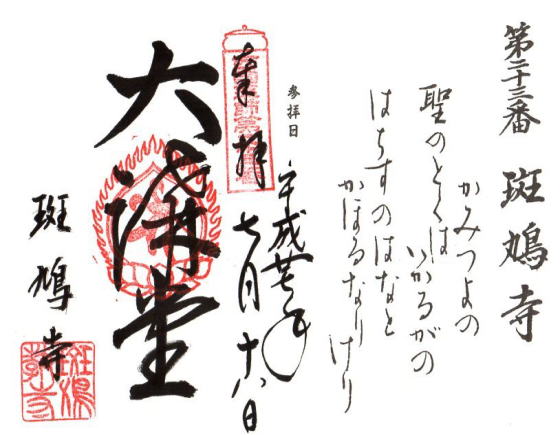 第二十三番 斑鳩寺
かみつよの
聖のとくは
いかるがの
はちすのはなと
かほるなりけり
参拝日
平成廿年
七月十八日
奉拝
大講堂
斑鳩寺